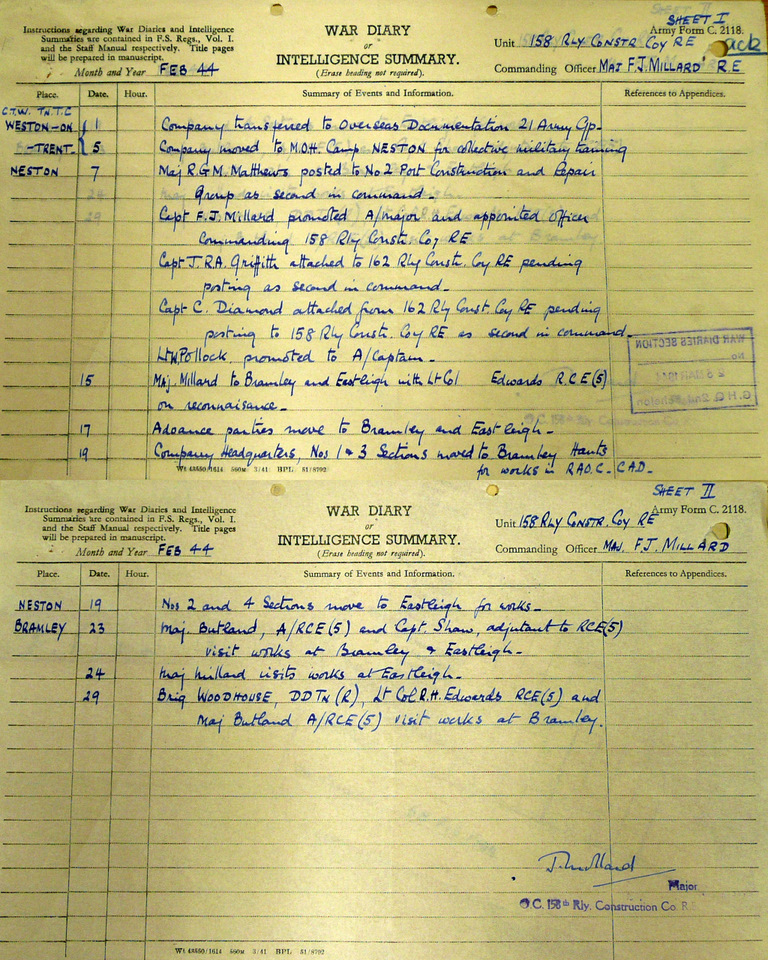 SHEET I
Instructions regarding War Diaries and Intelligence
Summaries are contained in F.S. Regs., Vol. I.
and the Staff Manual respectively. Title pages
will be prepared in manuscript.
Month and Year FEB 44
WAR DIARY
or
INTELLIGENCE SUMMARY.
(Erase heading not required).
Army Form C. 2118.
Unit 158 RLY CONSTR COY RE
Commanding Officer MAJ F.J. MILLARD R.E
Place. Date. Hour. Summary of Events and Information. References to Appendices.
C.T.W. TN.T.C
WESTON-ON 1 Company transferred to Overseas Documentation 21 Army Gp-
-TRENT 5 Company moved to M.O.H. Camp NESTON for collective military training
NESTON 7 Maj R.G.M. Matthews posted to No 2 Port Construction and Repair
Group as second in command-
Capt F.J. Millard promoted A/major and appointed officer
Commanding 158 Rly Constr. Coy RE
Capt J.R.A. Griffith attached to 162 Rly Constr. Coy RE pending
posting as second in command-
Capt C. Diamond attached from 162 Rly Const. Coy RE pending
posting to 158 Rly Constr. Coy RE as second in command-
Lt W. Pollock promoted to A/Captain-
15 Maj. Millard to Bramley and Eastleigh with Lt Col Edwards R.C.E(5)
on reconnaisance-
17 Advance parties move to Bramley and Eastleigh-
19 Company Headquarters, Nos 1 & 3 Sections moved to Bramley Hants
for works in R.A.O.C.- C.A.D-
WAR DIARIES SECTION
No
G.H.Q. 2nd Echelon
Wt 43550/1614 560M 3/41 BPL 51/8792
SHEET II
Instructions regarding War Diaries and Intelligence
Summaries are contained in F.S. Regs., Vol. I.
and the Staff Manual respectively. Title pages
will be prepared in manuscript.
Month and Year FEB 44
WAR DIARY
or
INTELLIGENCE SUMMARY.
(Erase heading not required).
Army Form C. 2118.
Unit 158 RLY CONSTR. COY RE
Commanding Officer MAJ. F.J. MILLARD
Place. Date. Hour. Summary of Events and Information. References to Appendices.
NESTON 19 Nos 2 and 4 Sections move to Eastleigh for works-
BRAMLEY 23 Maj. Butland, A/RCE(5) and Capt. Shaw, adjutant to RCE(5)
visit works at Bramley & Eastleigh-
24 Maj Millard visits works at Eastleigh-
29 Brig WOODHOUSE, DDTN(R), Lt Col R.H. Edwards RCE(5) and
Maj Butland A/RCE(5) visit works at Bramley.
Major
O.C. 158th Rly. Construction Co. R
Wt 43550/1614 560M 3/41 BPL 51/8792